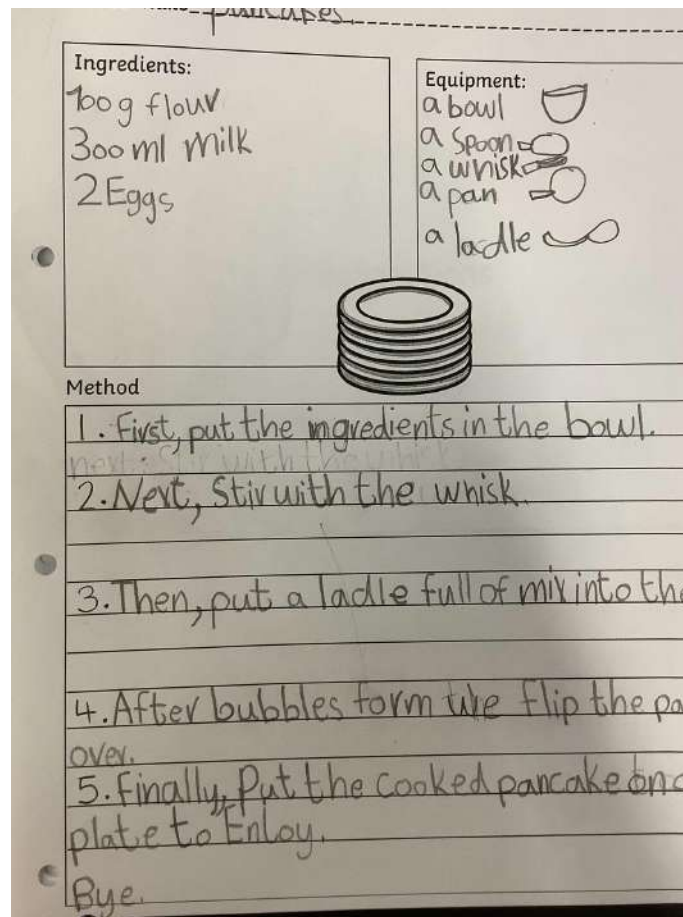 pancakes
Ingredients:
100g flour
300 ml milk
2 Eggs
Equipment:
a bowl
a spoon
a whisk
a pan
a ladle
Method
1. First, put the ingredients in the bowl.
next Stir with the whisk
2. Next, Stir with the whisk.
3. Then, put a ladle full of mix into the
4. After bubbles form we flip the pa
over.
5. Finally, Put the cooked pancake on a
plate to Enloy.
Bye.